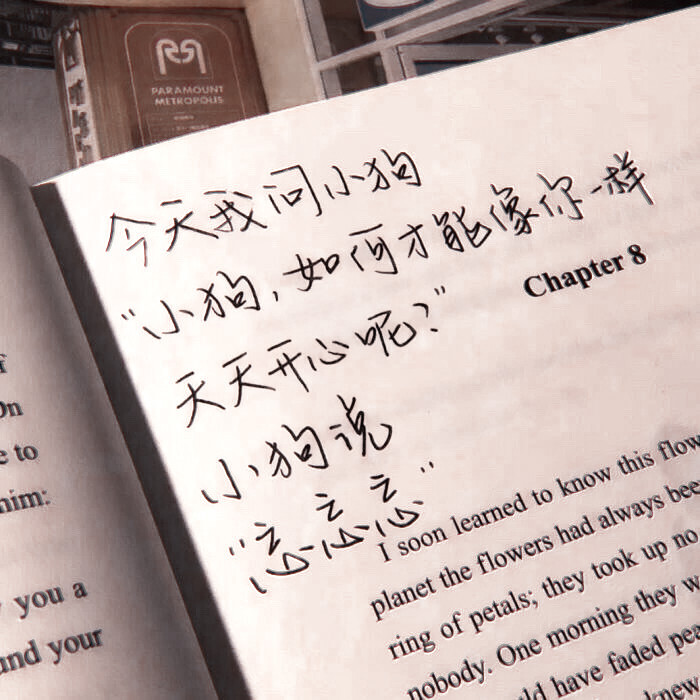 PARAMOUNT
METROPOLIS
今天我问小狗
“小狗,如何才能像你一样
天天开心呢?”
小狗说
“忘忘忘”
Chapter 8
I soon learned to know this flow
planet the flowers had always bee
ring of petals; they took up no
nobody. One morning they w
ld have faded pea
knew
f
On
e to
him:
you a
und your